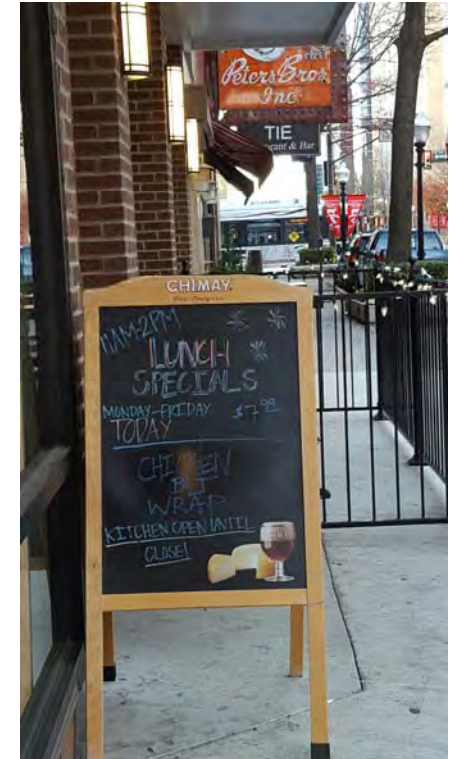 HAT
Peters Bros.
Inc
TIE
Restaurant & Bar
CHIMAY
11AM-2PM
LUNCH
SPECIALS
MONDAY-FRIDAY $7.99
TODAY
CHICKEN
BLT
WRAP
KITCHEN OPEN UNTIL
CLOSE!